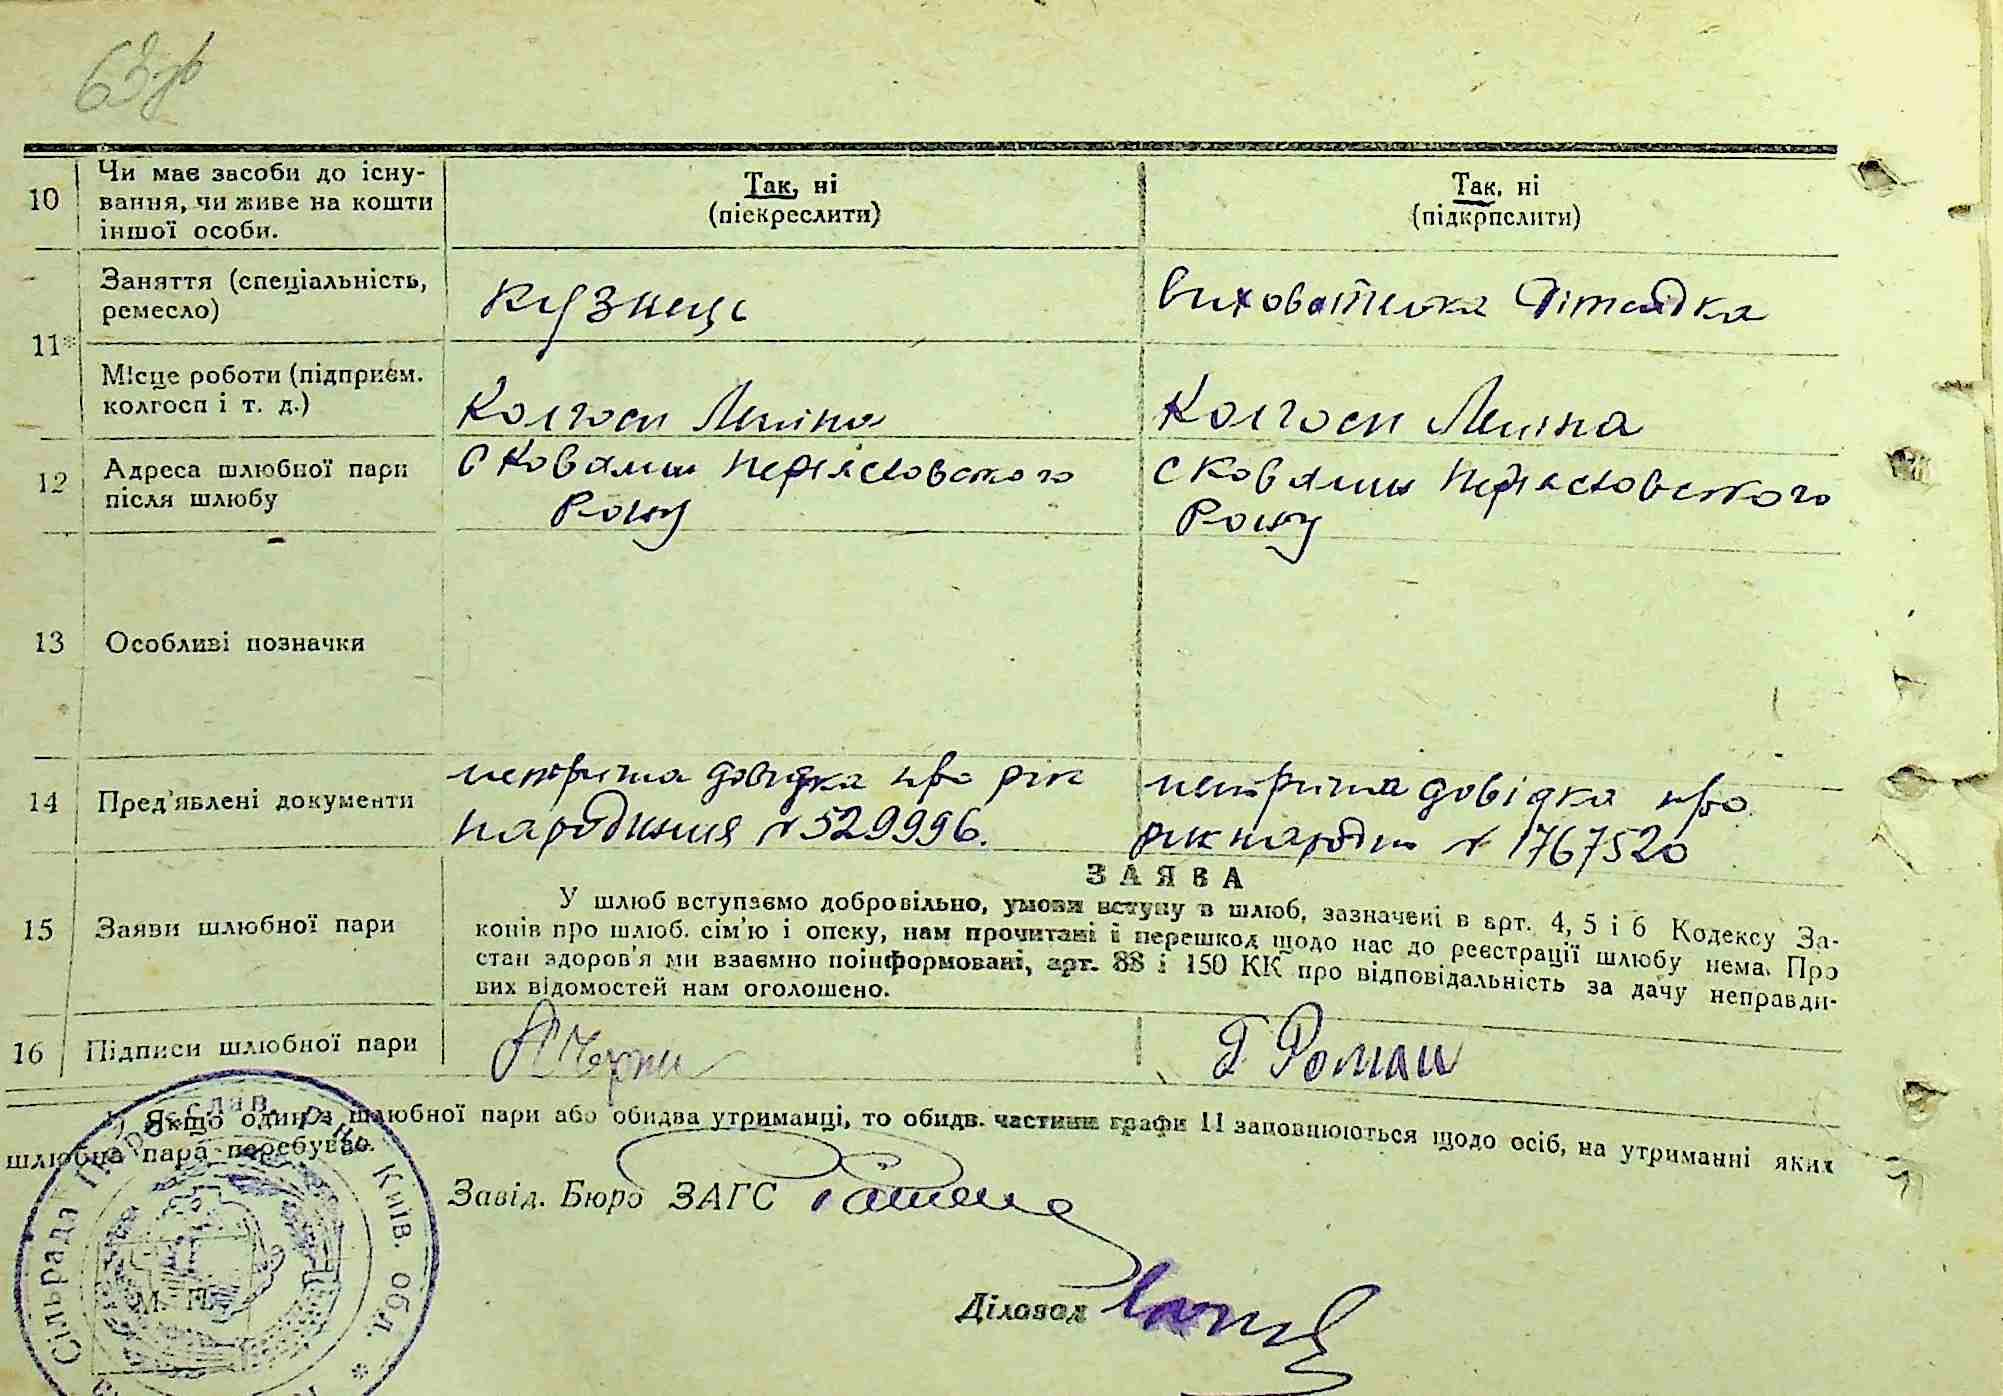 63
10
Чи має засоби до існу-
вання, чи живе на кошти
іншої особи.
Так, ні
(піекреслити)
Так, ні
(підкрпслити)
11*
Заняття (спеціальність,
ремесло)
кузнець
вихователька дітсадка
Місце роботи (підприєм.
колгосп і т. д.)
Колгосп Леніна
Колгосп Леніна
12
Адреса шлюбної пари
після шлюбу
с Ковалин Переясловського
Року
с Ковалин Переясловського
Року
13
Особливі позначки
14
Пред'явлені документи
метрична довідка про рік
народження № 529996.
метрична довідка про
рік народж № 1767520
15
Заяви шлюбної пари
ЗАЯВА
У шлюб вступаємо добровільно, умови вступу в шлюб, зазначені в арт. 4, 5 і 6 Кодексу За-
конів про шлюб. сім'ю і опеку, нам прочитані і перешкод щодо нас до реєстрації шлюбу нема. Про
стан здоров'я ми взаємно поінформовані, арт. 88 і 150 КК про відповідальність за дачу неправди-
вих відомостей нам оголошено.
16
Підписи шлюбної пари
Г. Роман
Якщо один з шлюбної пари або обидва утриманці, то обидв. частини графи 11 заповнюються щодо осіб, на утриманні яких
шлюбна пара перебуває.
Завід. Бюро ЗАГС
Діловод
М. П.
Сільрада Переяслав. Р-ну Київ. обл. *